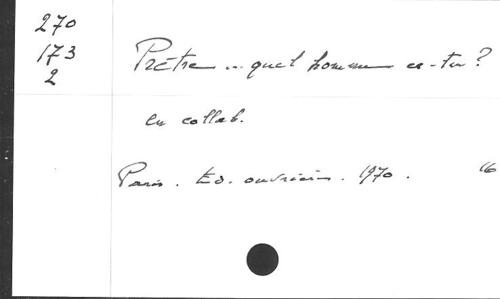 270
173
2
Prêtre... quel homme es-tu?
en collab.
Paris. Ed. ouvrières. 1970. 16